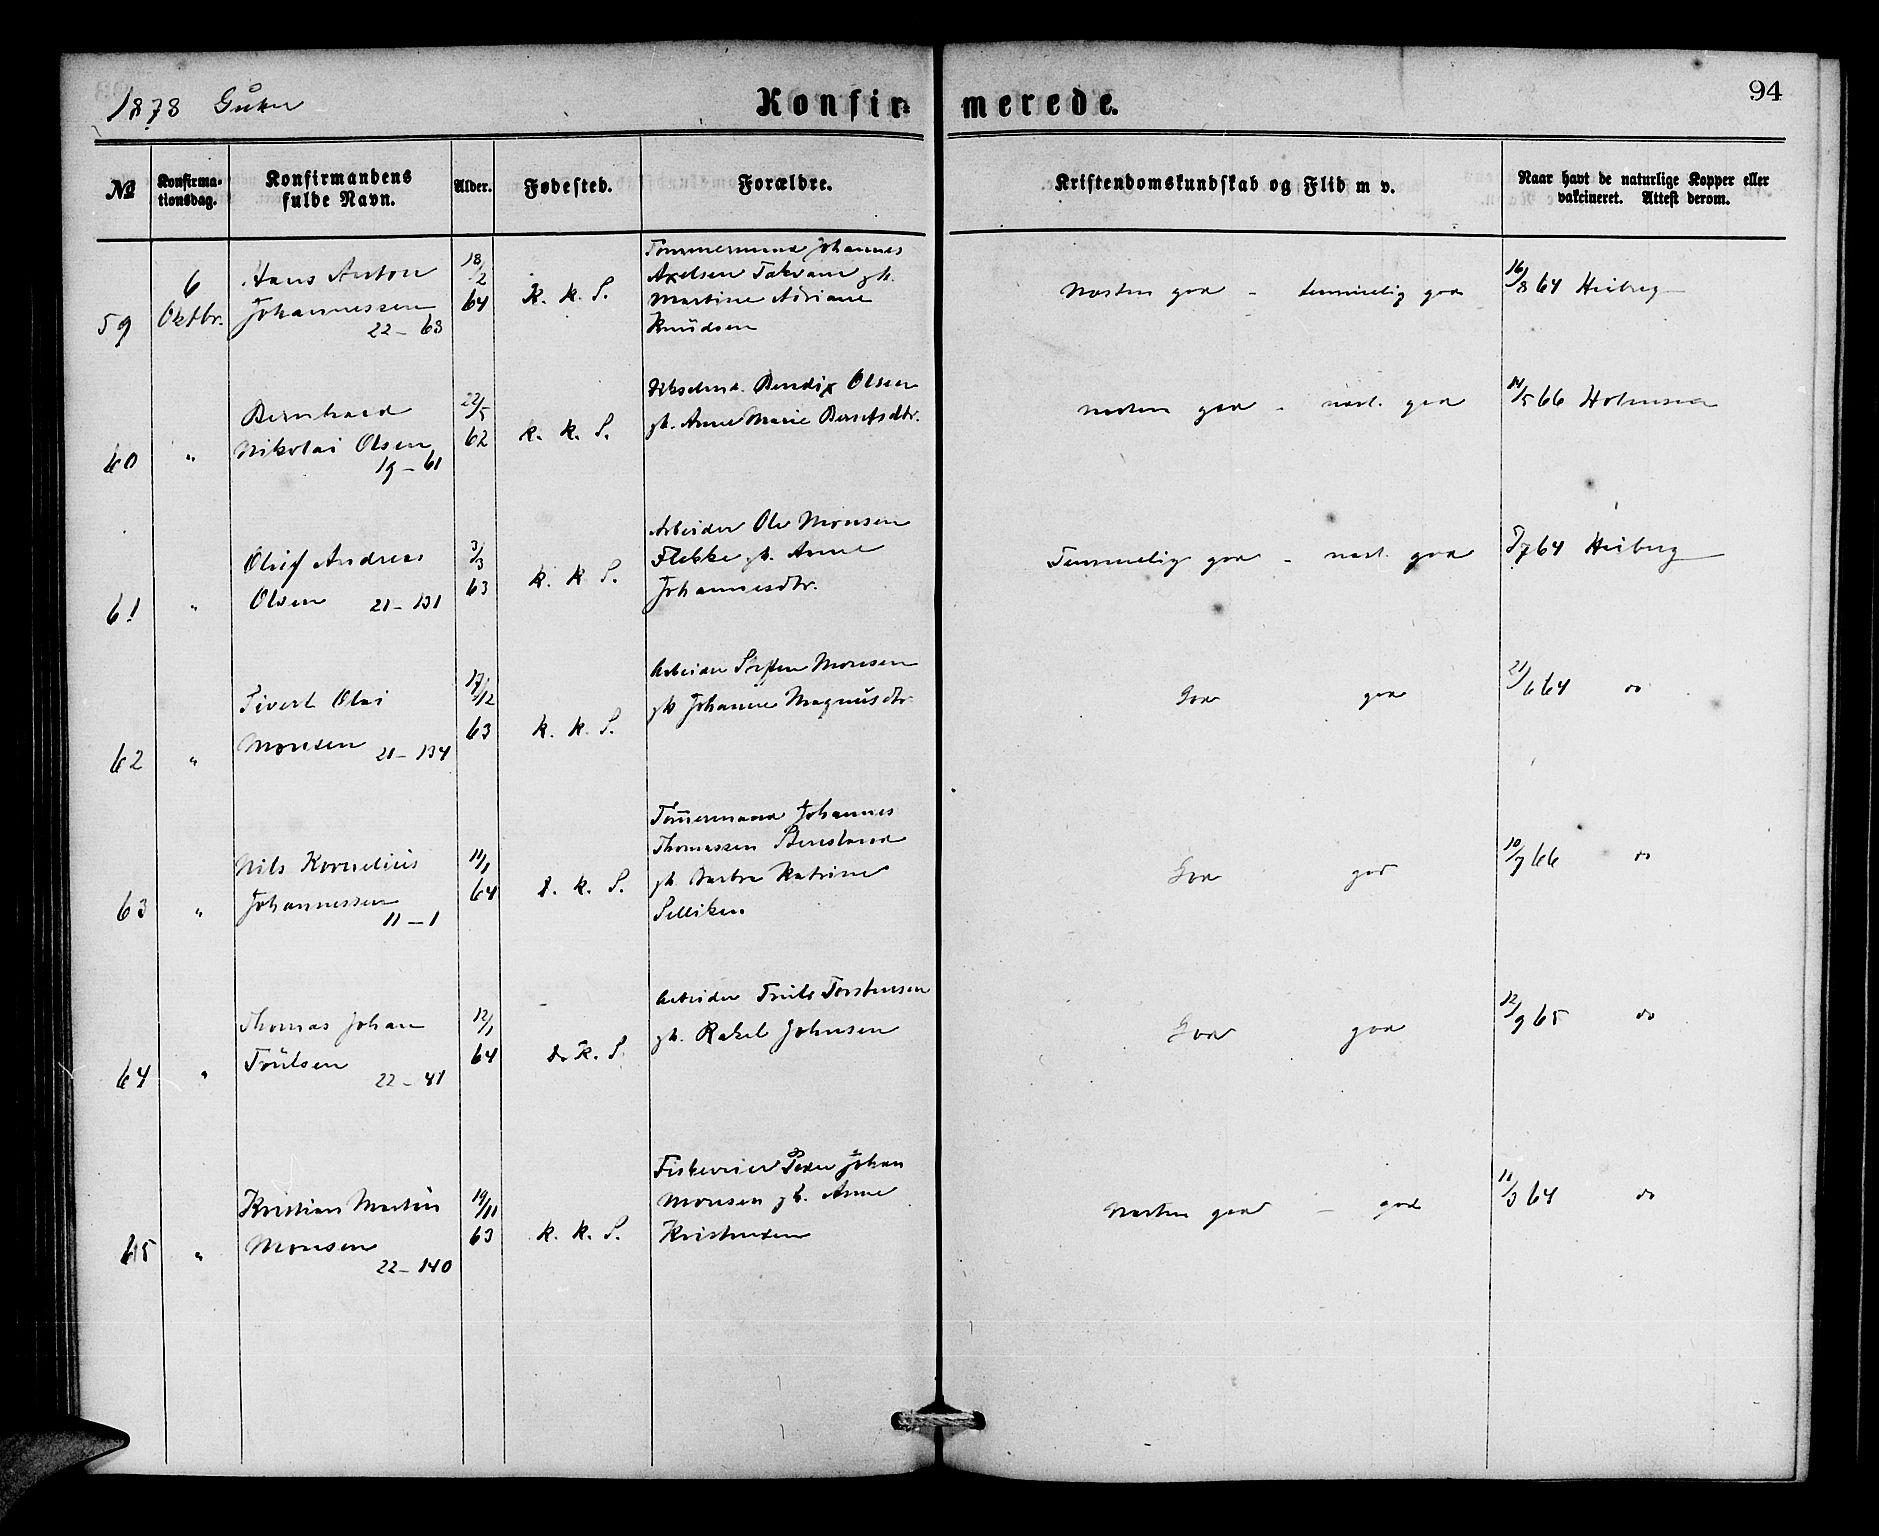 1878 Gutter
Konfirmerede.
94
No
Konfirmationsdag.
Konfirmandens fulde Navn.
Alder.
Fødested.
Forældre.
Kristendomskundskab og Flid m v.
Naar havt de naturlige Kopper eller vakcineret. Attest derom.
59
6 Oktbr.
Hans Anton
Johannessen
22 – 63
18/2 64
K. K. S.
Tømmermand Johannes
Axelsen Takvam gh.
Martine Adriane
Knudsen
Næsten god – temmelig god
16/8 64 Heiberg
60
"
Bernhard
Nikolai Olsen
19 – 61
22/5 62
K. K. S.
Bendix Olsen
gh. Anne Marie Berntsdtr.
næsten god – næst. god
14/5 66
61
"
Oluf Andreas
Olsen 21 – 131
3/3 63
K. K. S.
Arbeider Ole Monsen
Flekke gh. Anne
Johannesdtr.
Temmelig god – næst. god
5/7 64 Heiberg
62
"
Sivert Olai
Monsen 21 – 134
17/12 63
K. K. S.
Arbeider Steffen Monsen
gh Johanne Magnusdtr
God god
21/6 64 do
63
"
Nils Kornelius
Johannessen
11 – 1
11/1 64
D. K. S.
Tømmermand Johannes
Thomassen Stensland
gh. Katrine
Selliken
God god
10/7 66 do
64
"
Thomas Johan
Trulsen
22 – 41
12/1 64
D. K. S.
Arbeider Truls Torstensen
gh. Rakel Johnsen
God god
12/9 65 do
65
"
Kristian Martin
Monsen
22 – 140
19/11 63
K. K. S.
Peder Johan
Monsen gh. Anne
Kristensen
Næsten god – god
11/3 64 do